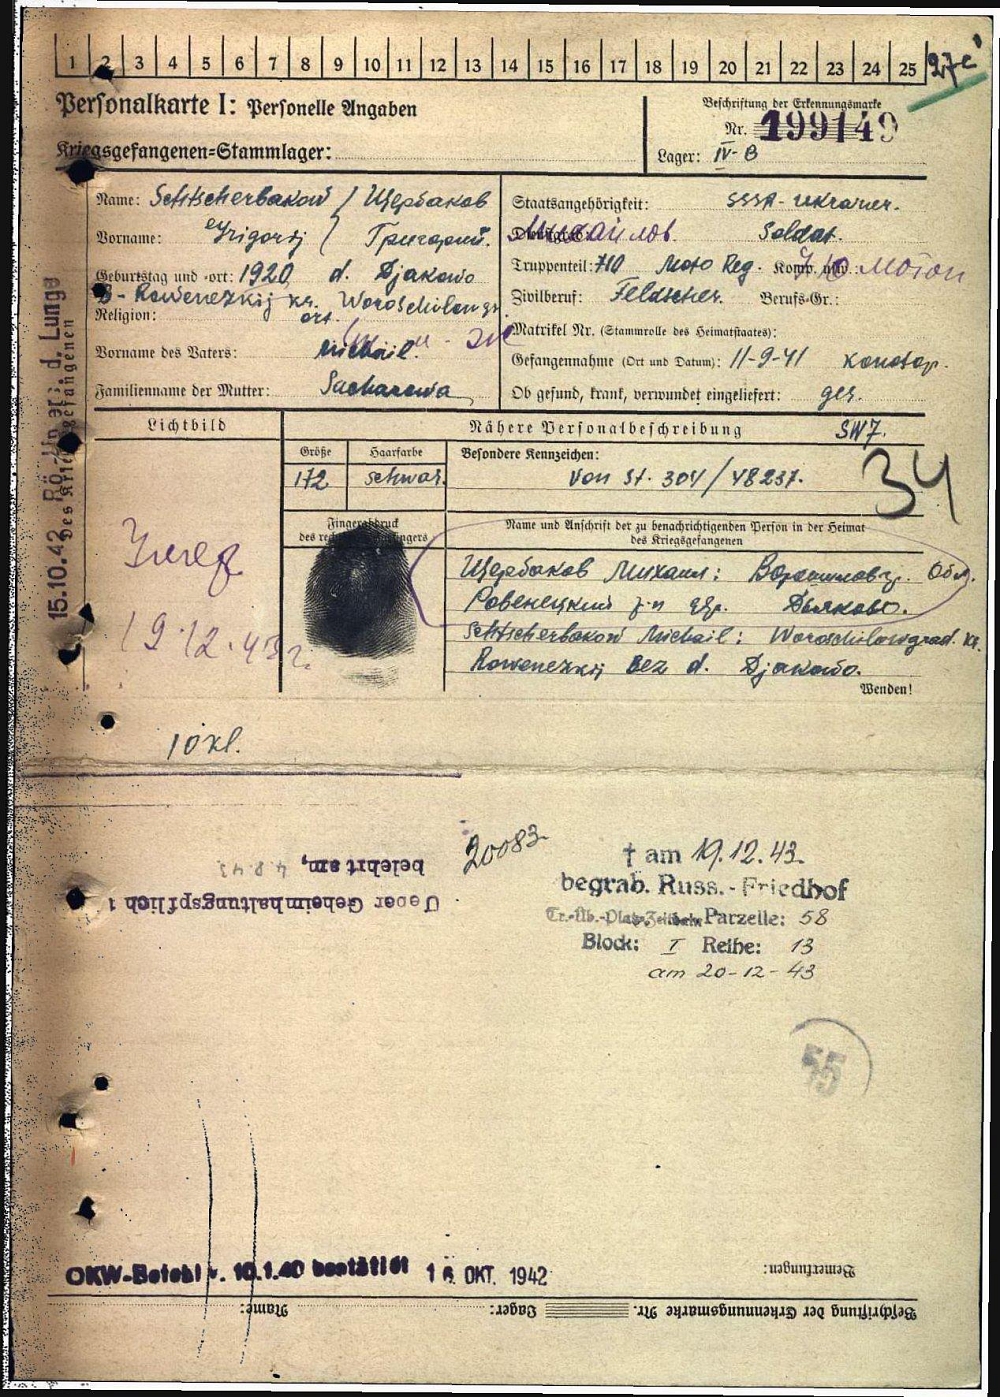 1 2 3 4 5 6 7 8 9 10 11 12 13 14 15 16 17 18 19 20 21 22 23 24 25
Personalkarte I: Personelle Angaben
Beschriftung der Erkennungsmarke
Nr. 199149
Kriegsgefangenen-Stammlager:
Lager: IV-B
Name: Schtscherbakow / Щербаков
Staatsangehörigkeit: SSSR-ukrainer.
Vorname: Grigorij Григорий.
Dienstgrad: Soldat.
Михайлов
Geburtstag und -ort: 1920 d. Djakowo
Truppenteil: 710 Moto Reg. Komp. usw.:
710 мотоп
B-Rowenezkij kr. Woroschilowgr.
Zivilberuf: Feldscher. Berufs-Gr.:
Religion: ort.
Matrikel Nr. (Stammrolle des Heimatstaates):
Vorname des Vaters: Michail.
Gefangennahme (Ort und Datum): 11-9-41 Konotop.
Familienname der Mutter: Sacharowa
Ob gesund, krank, verwundet eingeliefert: ges.
Lichtbild
Nähere Personalbeschreibung SW7.
Größe Haarfarbe Besondere Kennzeichen:
172 schwar. Von St. 304/48237.
34
Fingerabdruck
des rechten Zeigefingers
Name und Anschrift der zu benachrichtigenden Person in der Heimat
des Kriegsgefangenen
Щербаков Михаил: Ворошиловгр. Обл.
Ровенецкий р-н дер. Дьяково.
Schtscherbakow Michail: Woroschilowgrad. kr.
Rowenezkij Bez d. Djakowo.
Wenden!
Умер
19.12.43г.
15.10.42 Rö-Unters. d. Lunge
des Kriegsgefangenen
10 kl.
20083
† am 19.12.43.
begrab. Russ.-Friedhof
Tr.-Üb.-Platz Zeithain Parzelle: 58
Block: I Reihe: 13
am 20-12-43
Ueber Geheimhaltungspflicht
belehrt am, 4.8.43
55
OKW-Befehl v. 10.1.40 bestätigt 16. OKT. 1942
Bemerkungen:
Beschriftung der Erkennungsmarke Nr. Lager: Name: